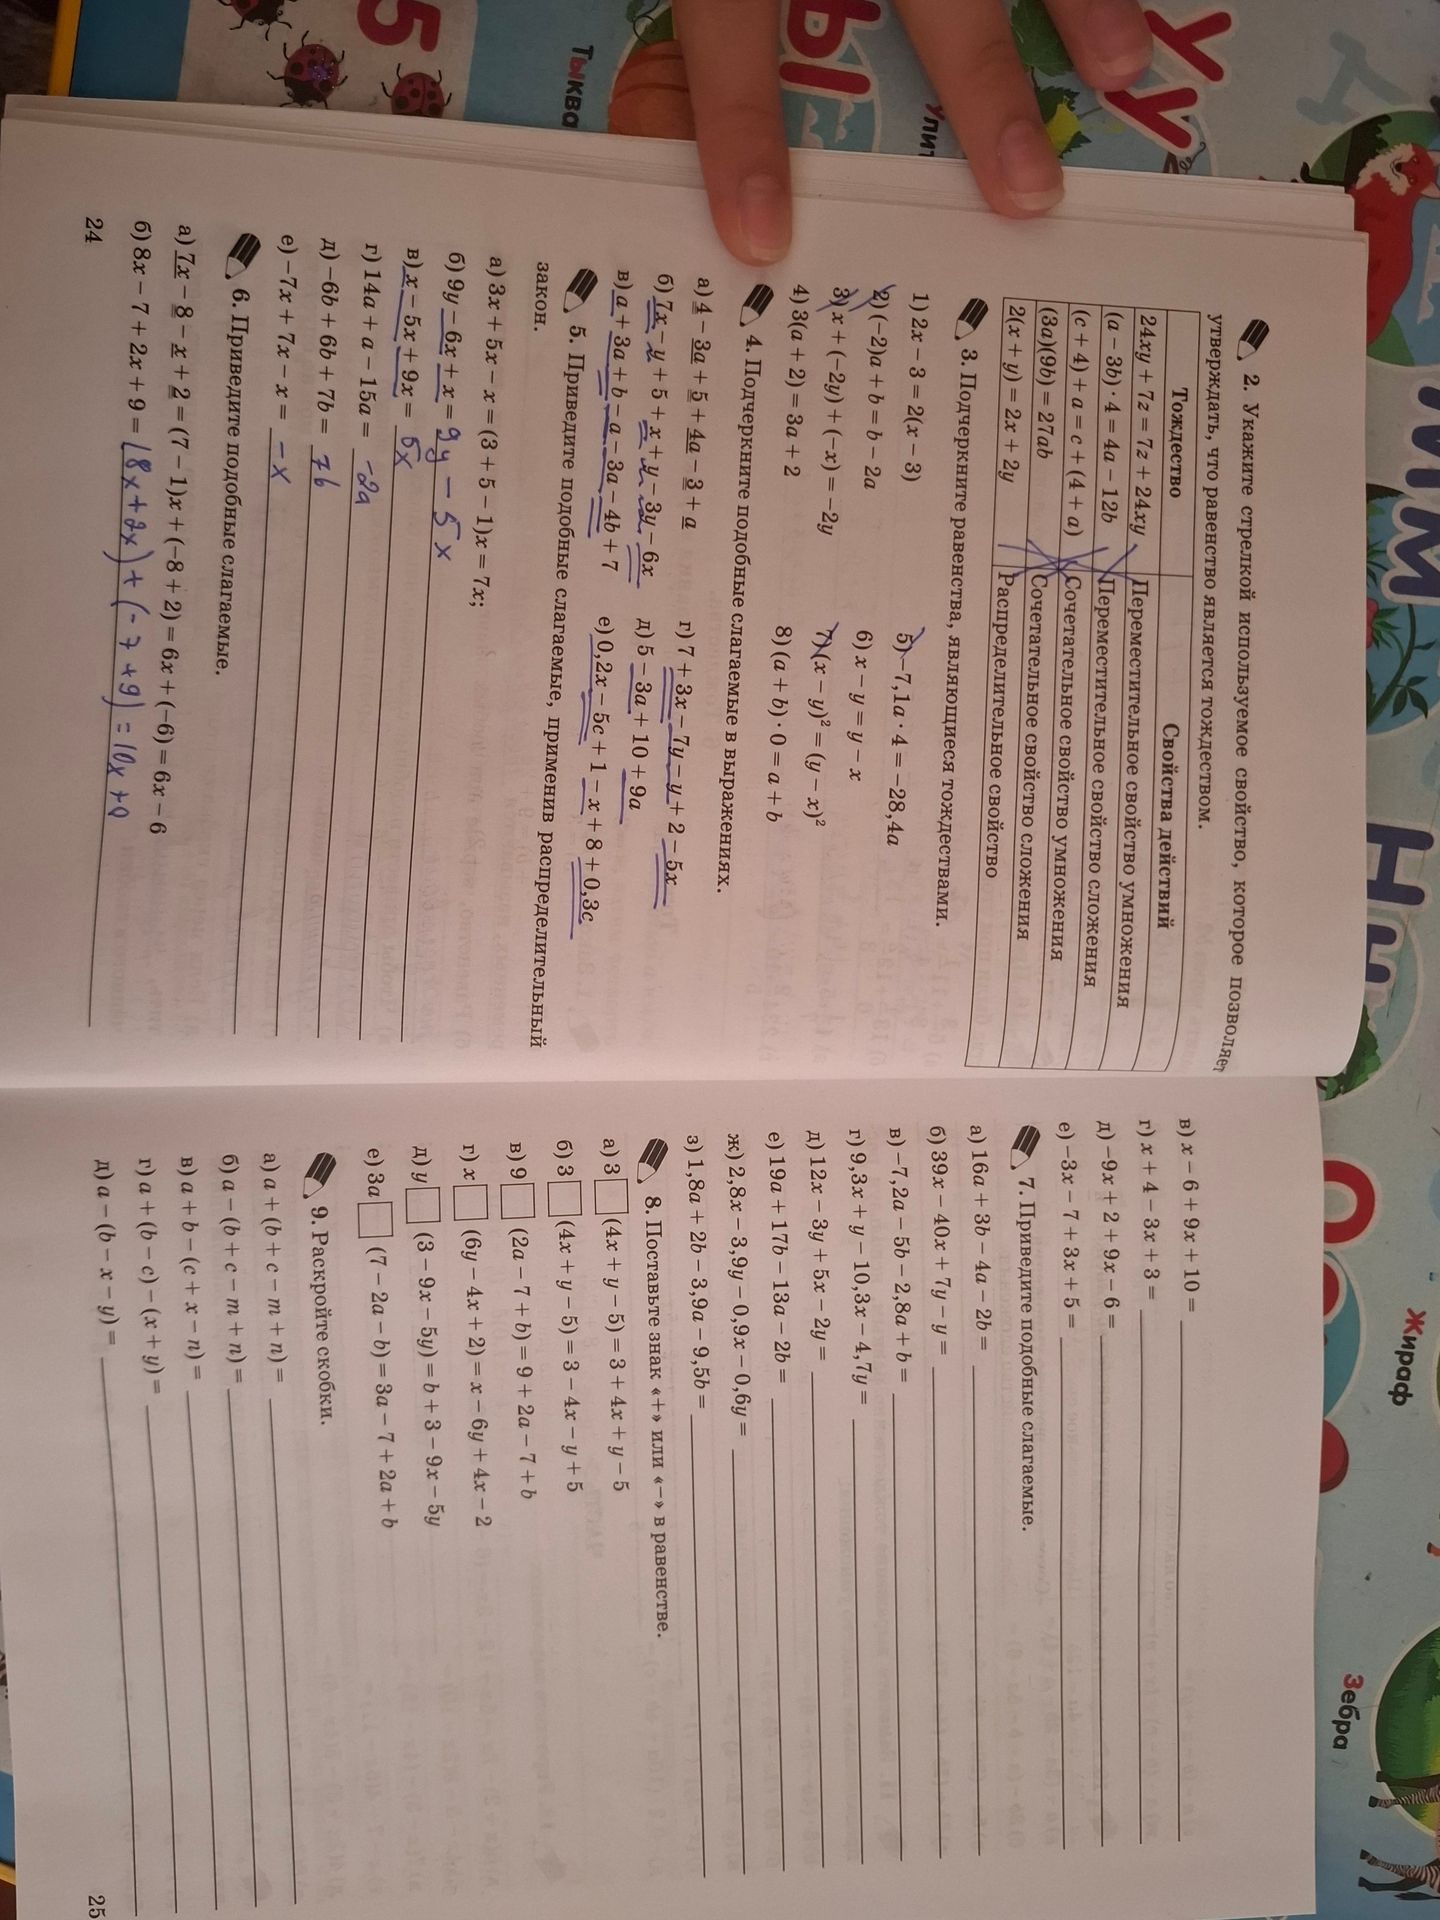 2. Укажите стрелкой используемое свойство, которое позволяет
утверждать, что равенство является тождеством.
Тождество Свойства действий
24xy + 7z = 7z + 24xy Переместительное свойство умножения
(a − 3b) · 4 = 4a − 12b Переместительное свойство сложения
(c + 4) + a = c + (4 + a) Сочетательное свойство умножения
(3a)(9b) = 27ab Сочетательное свойство сложения
2(x + y) = 2x + 2y Распределительное свойство
3. Подчеркните равенства, являющиеся тождествами.
1) 2x − 3 = 2(x − 3) 5) −7,1a · 4 = −28,4a
2) (−2)a + b = b − 2a 6) x − y = y − x
3) x + (−2y) + (−x) = −2y 7) (x − y)² = (y − x)²
4) 3(a + 2) = 3a + 2 8) (a + b) · 0 = a + b
4. Подчеркните подобные слагаемые в выражениях.
а) 4 − 3a + 5 + 4a − 3 + a г) 7 + 3x − 7y − y + 2 − 5x
б) 7x − y + 5 + x + y − 3y − 6x д) 5 − 3a + 10 + 9a
в) a + 3a + b − a − 3a − 4b + 7 е) 0,2x − 5c + 1 − x + 8 + 0,3c
5. Приведите подобные слагаемые, применив распределительный
закон.
а) 3x + 5x − x = (3 + 5 − 1)x = 7x;
б) 9y − 6x + x = 9y − 5x
в) x − 5x + 9x = 5x
г) 14a + a − 15a = -2a
д) −6b + 6b + 7b = 7b
е) −7x + 7x − x = −x
6. Приведите подобные слагаемые.
а) 7x − 8 − x + 2 = (7 − 1)x + (−8 + 2) = 6x + (−6) = 6x − 6
б) 8x − 7 + 2x + 9 = (8x + 2x) + (−7 + 9) = 10x +
24
в) x − 6 + 9x + 10 =
г) x + 4 − 3x + 3 =
д) −9x + 2 + 9x − 6 =
е) −3x − 7 + 3x + 5 =
7. Приведите подобные слагаемые.
а) 16a + 3b − 4a − 2b =
б) 39x − 40x + 7y − y =
в) −7,2a − 5b − 2,8a + b =
г) 9,3x + y − 10,3x − 4,7y =
д) 12x − 3y + 5x − 2y =
е) 19a + 17b − 13a − 2b =
ж) 2,8x − 3,9y − 0,9x − 0,6y =
з) 1,8a + 2b − 3,9a − 9,5b =
8. Поставьте знак «+» или «−» в равенстве.
а) 3 (4x + y − 5) = 3 + 4x + y − 5
б) 3 (4x + y − 5) = 3 − 4x − y + 5
в) 9 (2a − 7 + b) = 9 + 2a − 7 + b
г) x (6y − 4x + 2) = x − 6y + 4x − 2
д) y (3 − 9x − 5y) = b + 3 − 9x − 5y
е) 3a (7 − 2a − b) = 3a − 7 + 2a + b
9. Раскройте скобки.
а) a + (b + c − m + n) =
б) a − (b + c − m + n) =
в) a + b − (c + x − n) =
г) a + (b − c) − (x + y) =
д) a − (b − x − y) =
25
5
Тыква
Ы
Ули
Уу
Нн
Жираф
Зебра